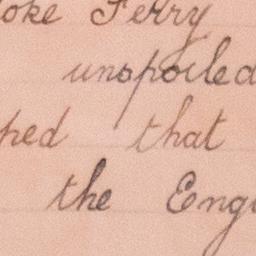 oke Ferry
unspoiled
ped that
the Eng